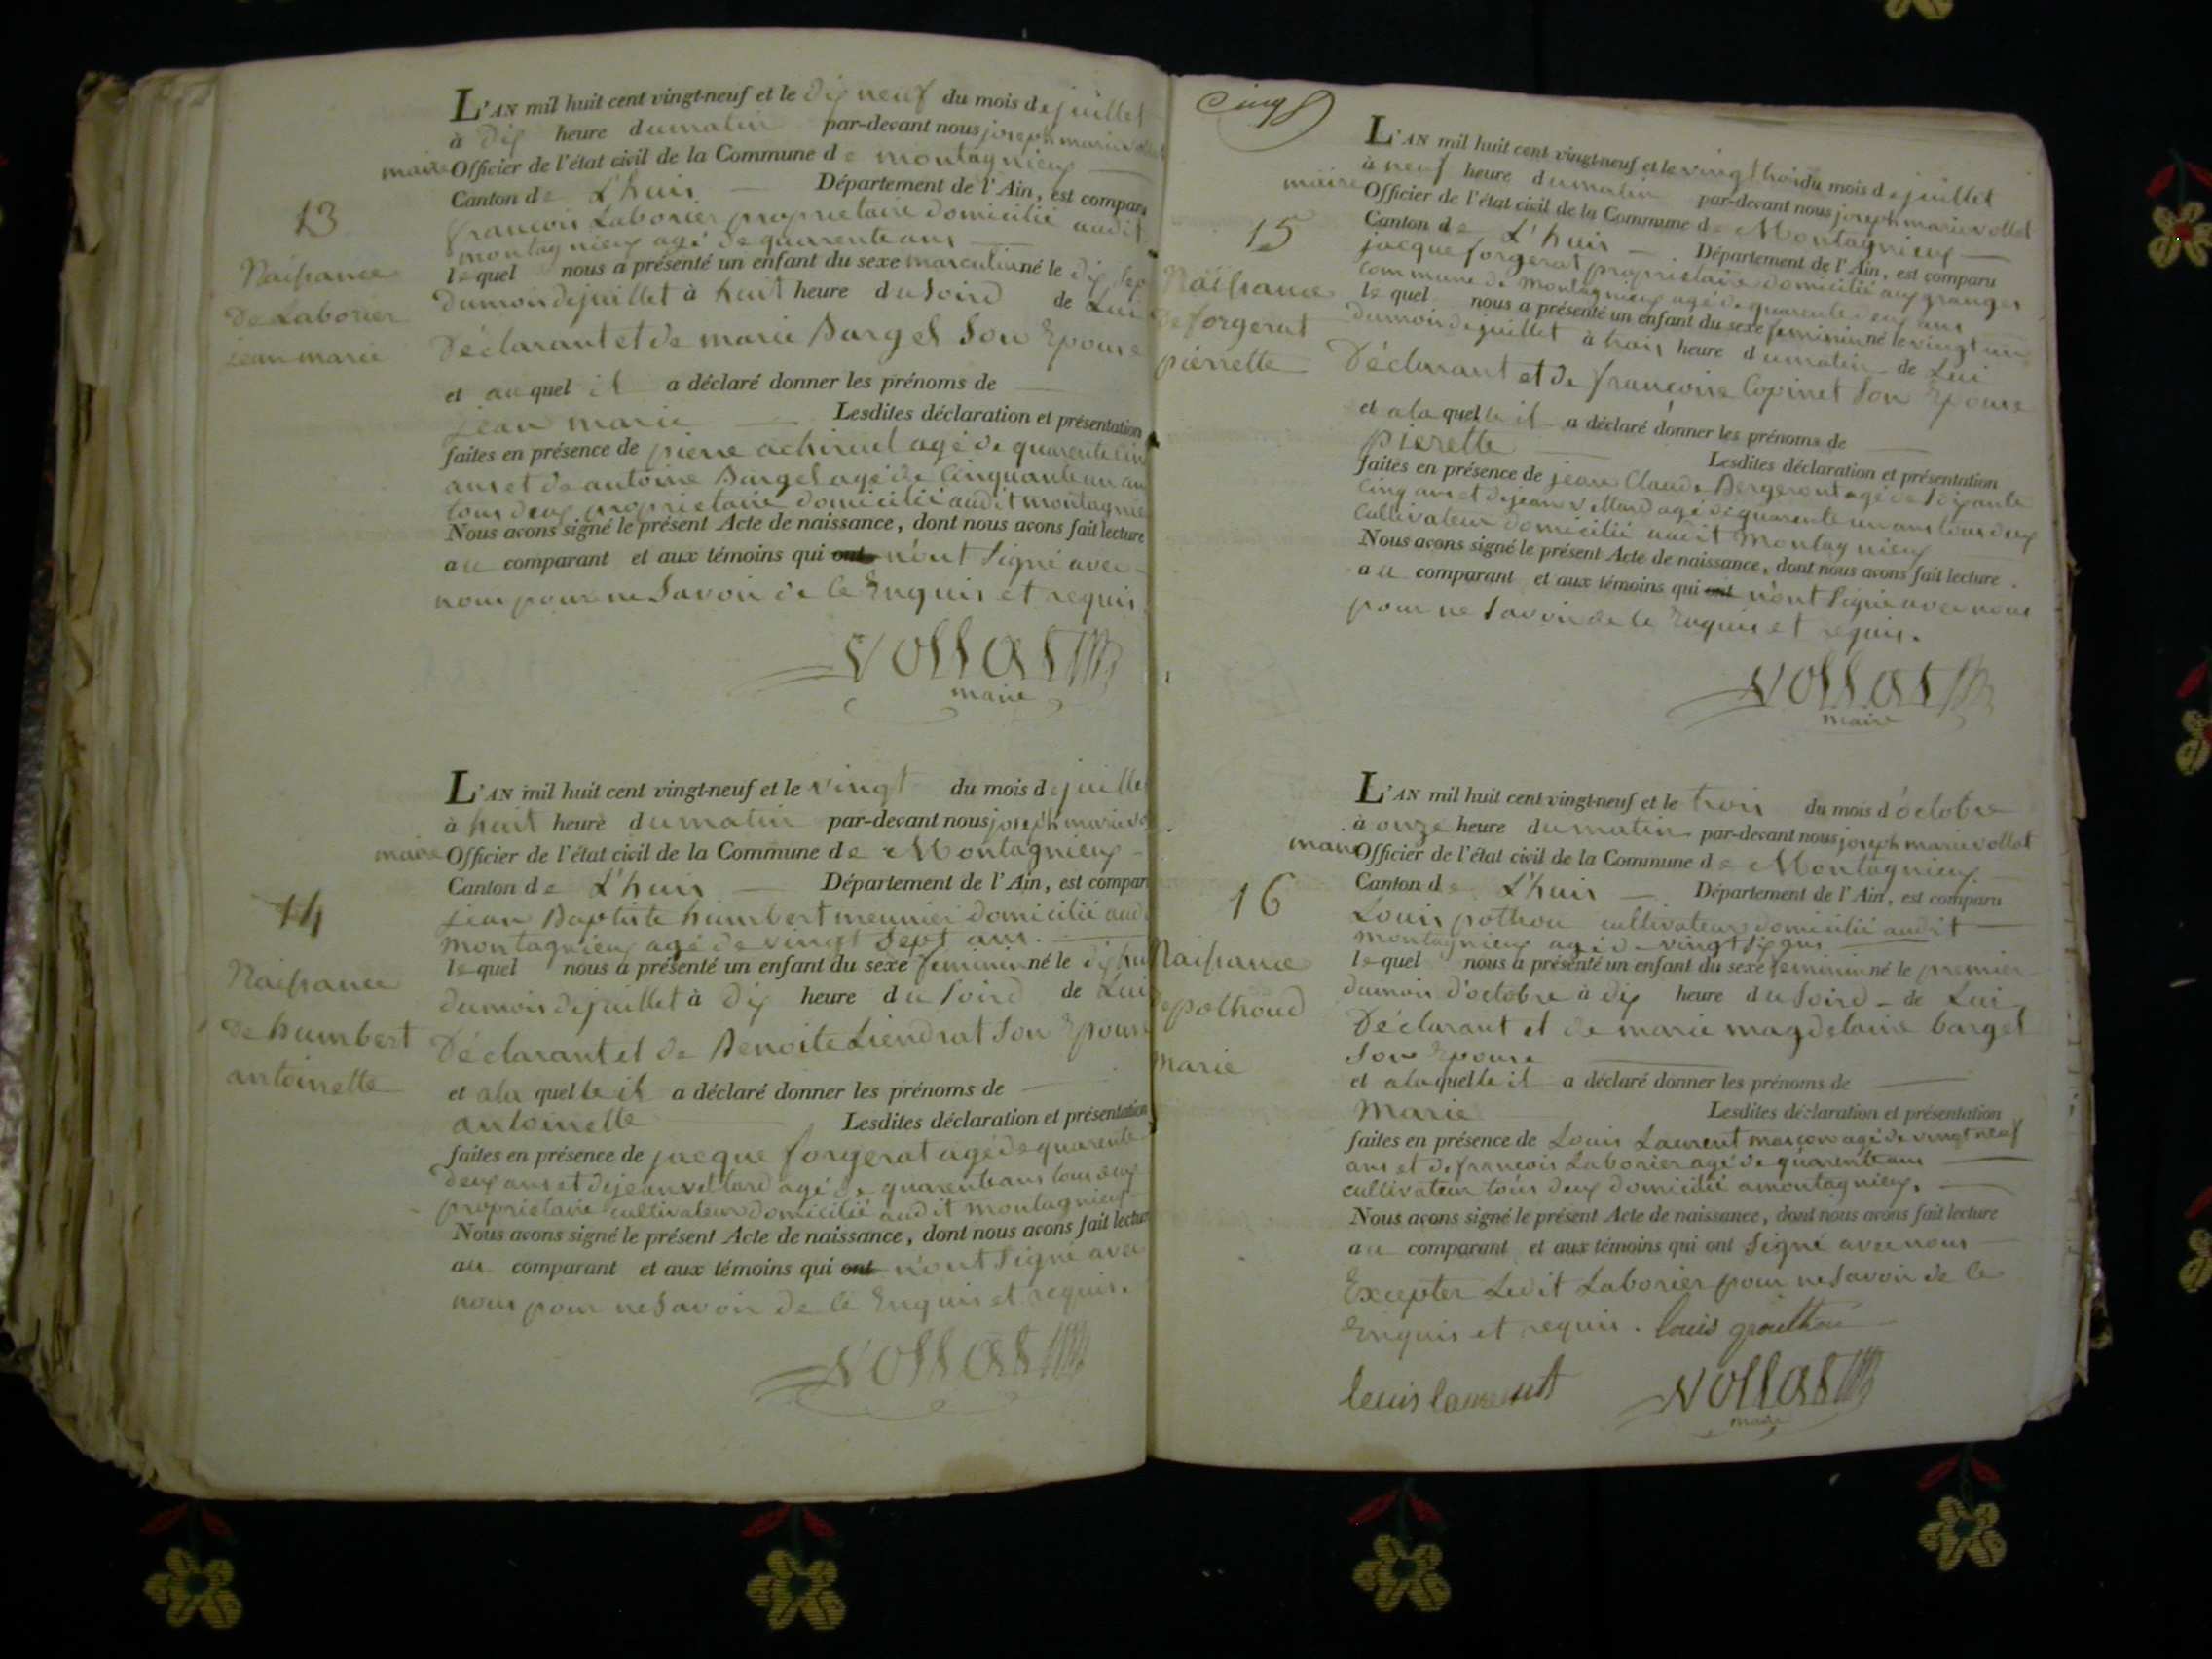 13
Naissance
De Laborier
jean marie
L'AN mil huit cent vingt-neuf et le dix neuf du mois de juillet
à dix heure du matin par-devant nous joseph marie
maire Officier de l'état civil de la Commune de montagnieux
Canton de L'huis Département de l'Ain, est comparu
francois Laborier proprietaire domicilié audit
montagnieux agé de quarente ans
lequel nous a présenté un enfant du sexe masculin né le dix sep
du mois de juillet à huit heure du soird de Lui
Déclarant et de marie Bargel Son Epouse
et au quel il a déclaré donner les prénoms de
jean marie Lesdites déclaration et présentation
faites en présence de pierre agé de quarente
ans et de antoine Bargel agé de Cinquante un an
tous deux proprietaire domicilié audit montagnieu
Nous avons signé le présent Acte de naissance, dont nous avons fait lecture
au comparant et aux témoins qui ont n'ont Signé avec
nous pour ne Savoir de le Enquis et requis
Vollat
maire
14
Naissance
de humbert
antoinette
L'AN mil huit cent vingt-neuf et le vingt du mois de juillet
à huit heure du matin par-devant nous joseph marie vo
maire Officier de l'état civil de la Commune de Montagnieux
Canton de L'huis Département de l'Ain, est compar
jean Baptiste humbert meunier domicilié aud
montagnieux agé de vingt Sept ans.
lequel nous a présenté un enfant du sexe feminin né le dix hu
du mois de juillet à dix heure du Soird de Lui
Déclarant et de Benoite Liendrat Son Epouse
et a la quelle il a déclaré donner les prénoms de
antoinette Lesdites déclaration et présentation
faites en présence de jacque forgerat agé de quarente
Deux ans et de jean vettard agé de quarente ans tous deux
proprietaire cultivateur domicilié audit montagnieux
Nous avons signé le présent Acte de naissance, dont nous avons fait lectur
au comparant et aux témoins qui ont n'ont Signé avec
nous pour ne Savoir de le Enquis et requis.
Vollat
Cinq
15
Naissance
de forgerat
pierrette
L'AN mil huit cent vingt-neuf et le vingt trois du mois de juillet
à neuf heure du matin par-devant nous joseph marie vollat
maire Officier de l'état civil de la Commune de Montagnieux
Canton de L'huis Département de l'Ain, est comparu
jacque forgerat proprietaire domicilié aux granges
commune de Montagnieux agé de quarente deux ans
lequel nous a présenté un enfant du sexe feminin né le vingt un
du mois de juillet à trois heure du matin de Lui
Déclarant et de francoise Copinet Son Epouse
et a la quelle il a déclaré donner les prénoms de
pierette Lesdites déclaration et présentation
faites en présence de jean Claude Bergeront agé de Soixante
Cinq ans et de jean vettard agé de quarente un ans tous deux
Cultivateur domicilié audit Montagnieux
Nous avons signé le présent Acte de naissance, dont nous avons fait lecture
au comparant et aux témoins qui ont n'ont Signé avec nous
pour ne Savoir de le Enquis et requis.
Vollat
maire
16
Naissance
de pothoud
marie
L'AN mil huit cent vingt-neuf et le trois du mois d'octobre
à onze heure du matin par-devant nous joseph marie vollat
maire Officier de l'état civil de la Commune de Montagnieux
Canton de L'huis Département de l'Ain, est comparu
Louis pothou cultivateur domicilié audit
montagnieux agé de vingt Six ans
lequel nous a présenté un enfant du sexe feminin né le premier
du mois d'octobre à dix heure du Soird de Lui
Déclarant et de marie magdelaine bargel
Son Epouse
et a la quelle il a déclaré donner les prénoms de
Marie Lesdites déclaration et présentation
faites en présence de Louis Laurent macon agé de vingt neuf
ans et de francois Laborier agé de quarente ans
cultivateur tous deux domicilié a montagnieux.
Nous avons signé le présent Acte de naissance, dont nous avons fait lecture
au comparant et aux témoins qui ont Signé avec nous
Excepter Ledit Laborier pour ne Savoir de le
Enquis et requis. louis
louis laurent Vollat
maire